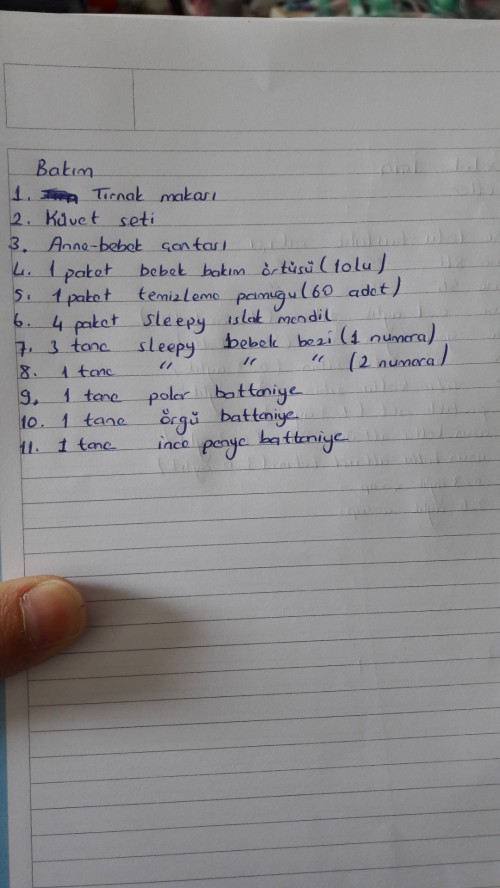 Bakım
1. Tırnak makası
2. Küvet seti
3. Anne-bebek çantası
4. 1 paket bebek bakım örtüsü (10lu)
5. 1 paket temizleme pamuğu (60 adet)
6. 4 paket sleepy ıslak mendil
7. 3 tane sleepy bebek bezi (1 numara)
8. 1 tane " " " (2 numara)
9. 1 tane polar battaniye
10. 1 tane örgü battaniye
11. 1 tane ince penye battaniye